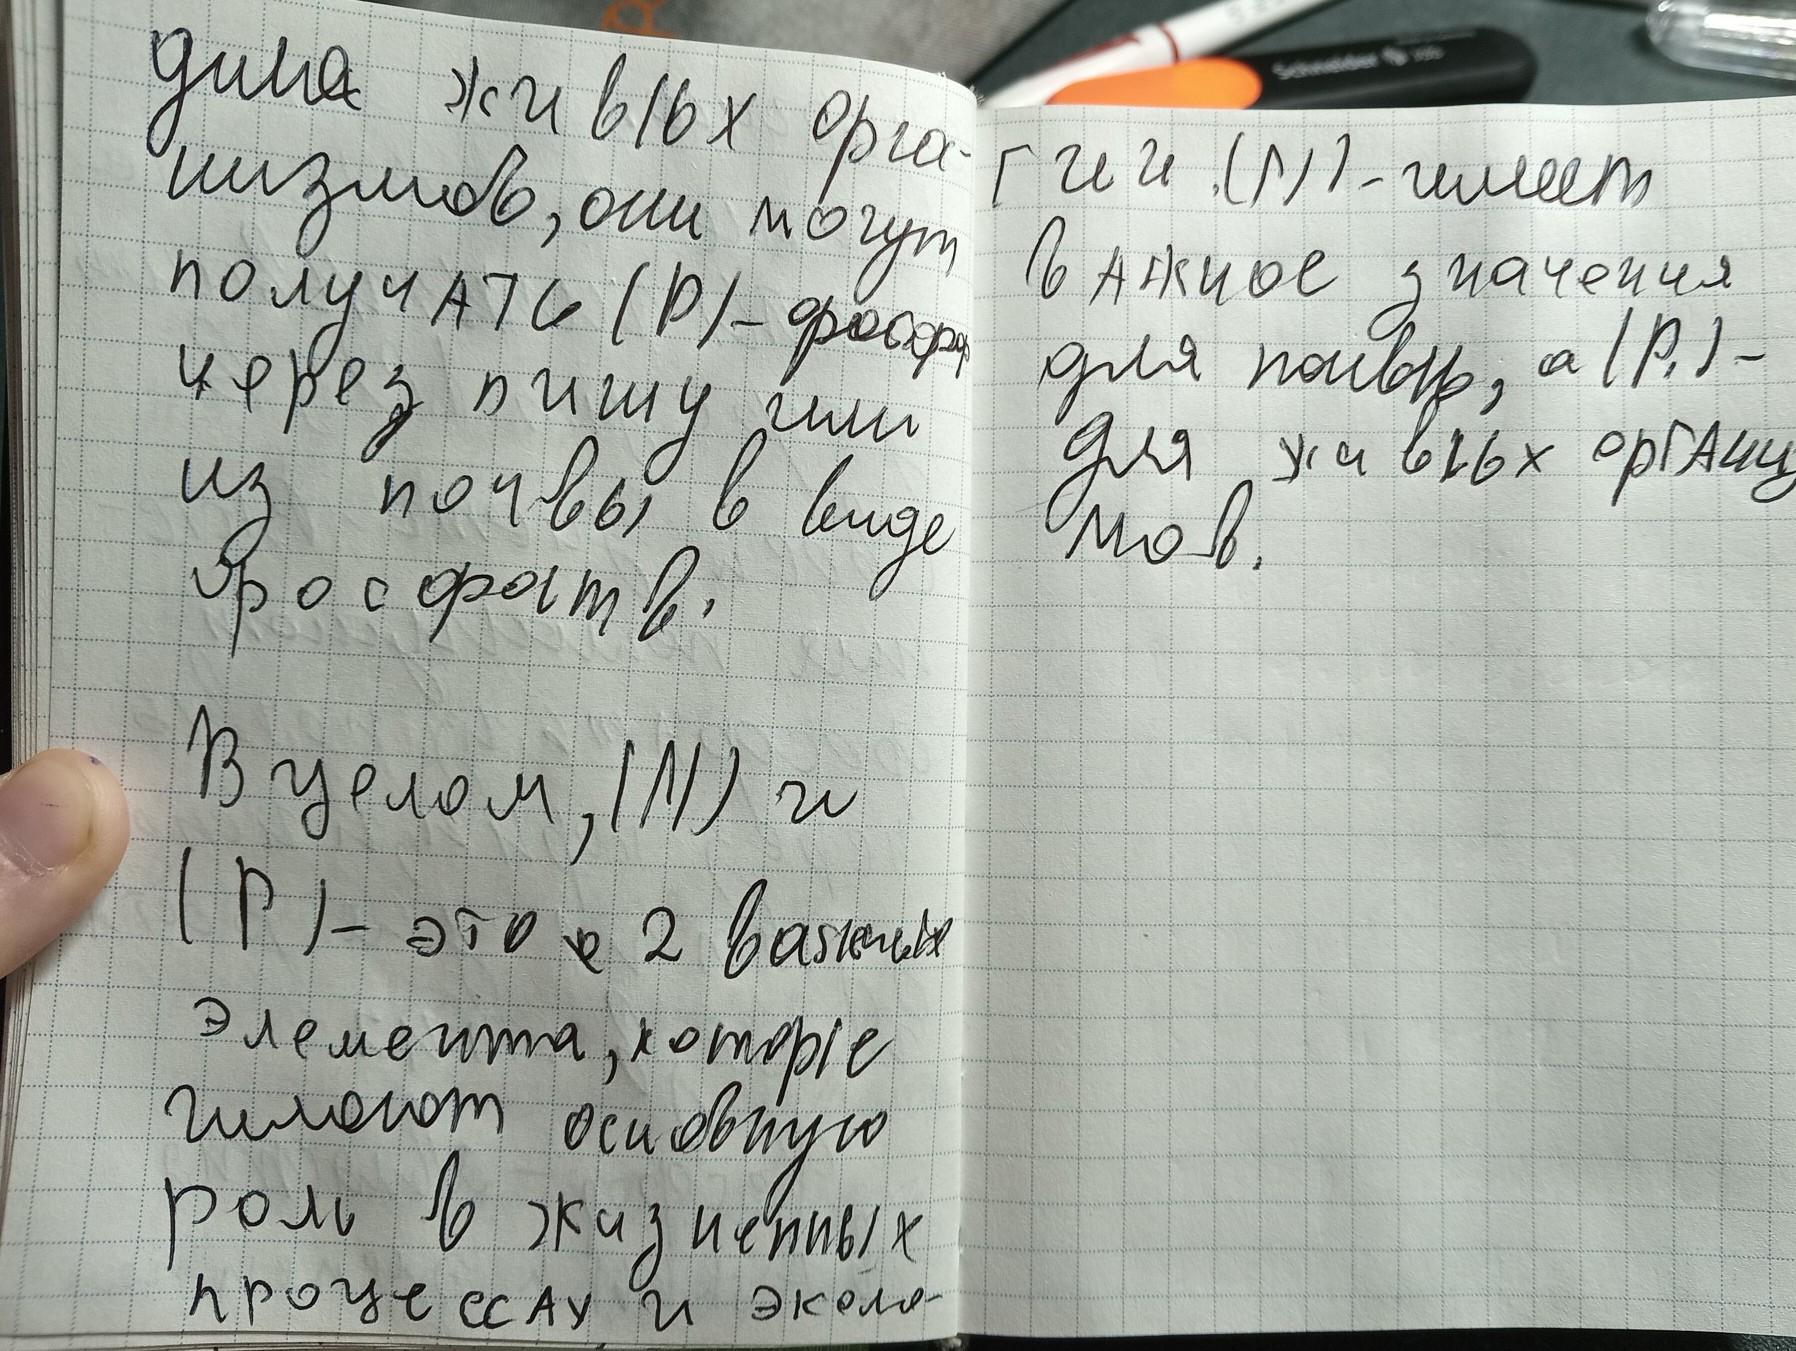 дима живых орга-
низмов, они могут
получАТЬ (P) - фосфор
через пищу или
из почвы в виде
фосфатв.
В целом, (N) и
(P) - это 2 важных
элемента, которіе
имеют основную
роль в жизненных
процессАх и эколо-
гии. (N) - имеет
вАжное значения
для почвы, а (P.) -
для живых оргАниз
мов.
Schneider